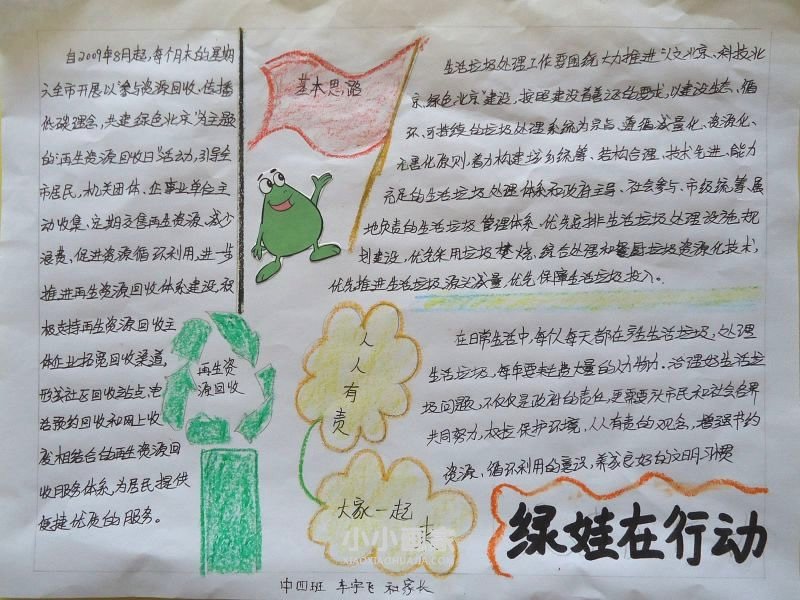 自2009年8月起,每个月末的星期
六全市开展以"参与资源回收、传播
低碳理念,共建绿色北京"为主题
的"再生资源回收日"活动,引导全
市居民,机关团体、企事业单位主
动收集、定期交售再生资源、减少
浪费、促进资源循环利用,进一步
推进再生资源回收体系建设,积
极支持再生资源回收主
体企业拓宽回收渠道,
形美社区回收站点、电
话预约回收和网上收
废相结合的再生资源回
收服务体系,为居民提供
便捷优质的服务。
再生资
源回收
基本思路
生活垃圾处理工作要围绕大力推进"人文北京、科技北
京、绿色北京"建设,按照建设首善之区的要求,以建设生态、循
环、可持续的垃圾处理系统为宗旨,遵循减量化、资源化、
无害化原则,着力构建城乡统筹、结构合理、技术先进、能力
充足的生活垃圾处理体系和政府主导、社会参与、市级统筹、属
地负责的生活垃圾管理体系,优先安排生活垃圾处理设施规
划建设,优先采用垃圾焚烧、综合处理和餐厨垃圾资源化技术,
优先推进生活垃圾源头减量,优先保障生活垃圾投入。
人
人
有
责
大家一起
来
在日常生活中,每人每天都在产生生活垃圾,处理
生活垃圾,每年要耗费大量的人力物力。治理好生活垃
圾问题,不仅仅是政府的责任,更需要市民和社会各界
共同努力,树立保护环境,人人有责的观念,增强节约
资源、循环利用的意识,养成良好的文明习惯
绿娃在行动
中四班 车宇飞 和家长
小小画家
XIAOXIAOHUAJIA.COM